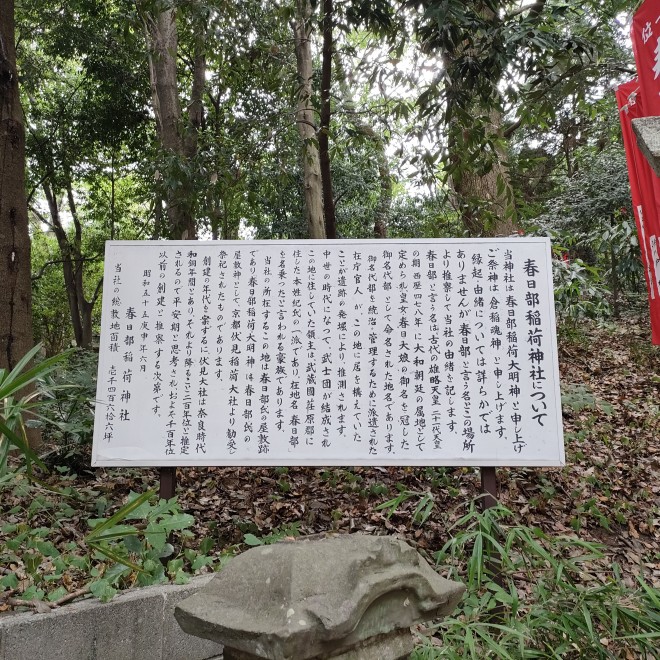 春日部稲荷神社について
当神社は、春日部稲荷大明神と申し上げ
ご祭神は、倉稲魂神と申し上げます。
縁起・由緒については詳らかでは
ありませんが、春日部と言う名とこの場所
より推察して当社の由緒を記します。
春日部と言う名は古代の雄略天皇 二十一代天皇
の期 西歴四七八年に大和朝廷の属地として
定められ皇女春日大娘の御名を冠した
御名代部として命名された地名であります。
御名代部を統治・管理するために派遣された
在庁官人が、この地に居を構えていた
ことが遺跡の発堀により推測されます。
中世の時代になって、武士団が結成され
この地に住していた領主は武蔵国荘原郡に
住した本姓紀氏の一派であり在地名「春日部」
を名乗ったと言われる豪族であります。
当社の所在するこの地は春日部氏の屋敷跡
であり春日部稲荷大明神は春日部氏の
屋敷神として、京都伏見稲荷大社より勧奨し
祭祀されたものであります。
創建の年代を案ずるに伏見大社は奈良時代
和銅年間とあり、それより降ること二百年位と推定
されるので平安期と思考され、およそ千百年位
以前の創建と推察する次第です。
昭和五十五庚申年六月
春日部稲荷神社
当社の総敷地面積 壱千四百六拾六坪
位